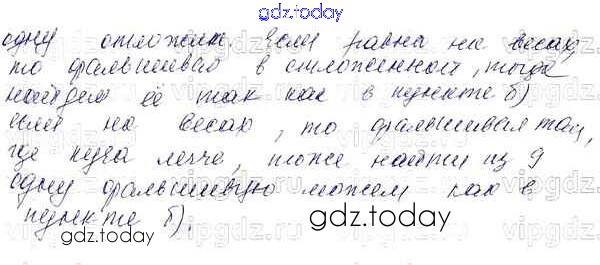 gdz.today
одну отложим. Если равна на весах,
то фальшивая в отложенной, тогда
найдем её так как в пункте б)
если на весах, то фальшивая там,
где куча легче, тоже найти из 9
одну фальшивую можем как в
пункте б).
gdz.today
gdz.today